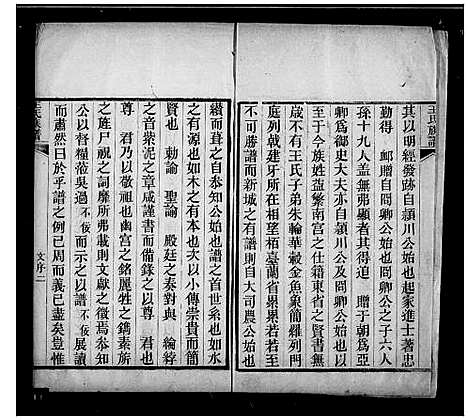 王氏族譜
其以明經發跡自潁川公始也起家進士著忠
勤得　邮贈自㒺卿公始也㒺卿公之子六人
孫十九人盖無弗顯者其得追　贈于朝為亞
卿為御史大夫亦自潁川公及㒺卿公始也以
至于今族姓盖繁南宫之仕籍東省之賢書無
歲不有王氏子弟朱輪華轂金魚象簡羅列門
庭列戟建牙所在相望栢臺蘭省累累若若不
可勝譜而新城之有譜則自大司農公始也
續而葺之自泰知公始也譜之首世系也如水
之有源也如木之有本也次以小傳崇貴而簡
賢也　勅諭　聖諭　殿廷之奏對與　綸綍
之音紫泥之章咸謹書而備錄之以尊　君也
尊　君乃以敬祖也幽宫之銘麗牲之碑素所
之旌尸祝之詞靡所弗載則文獻之徵焉叅知
公以督糧蒞吳過不佞而示之以譜不佞展讀
而肅然曰於乎譜之例已周而義已盡矣豈惟
王氏族譜
文序二